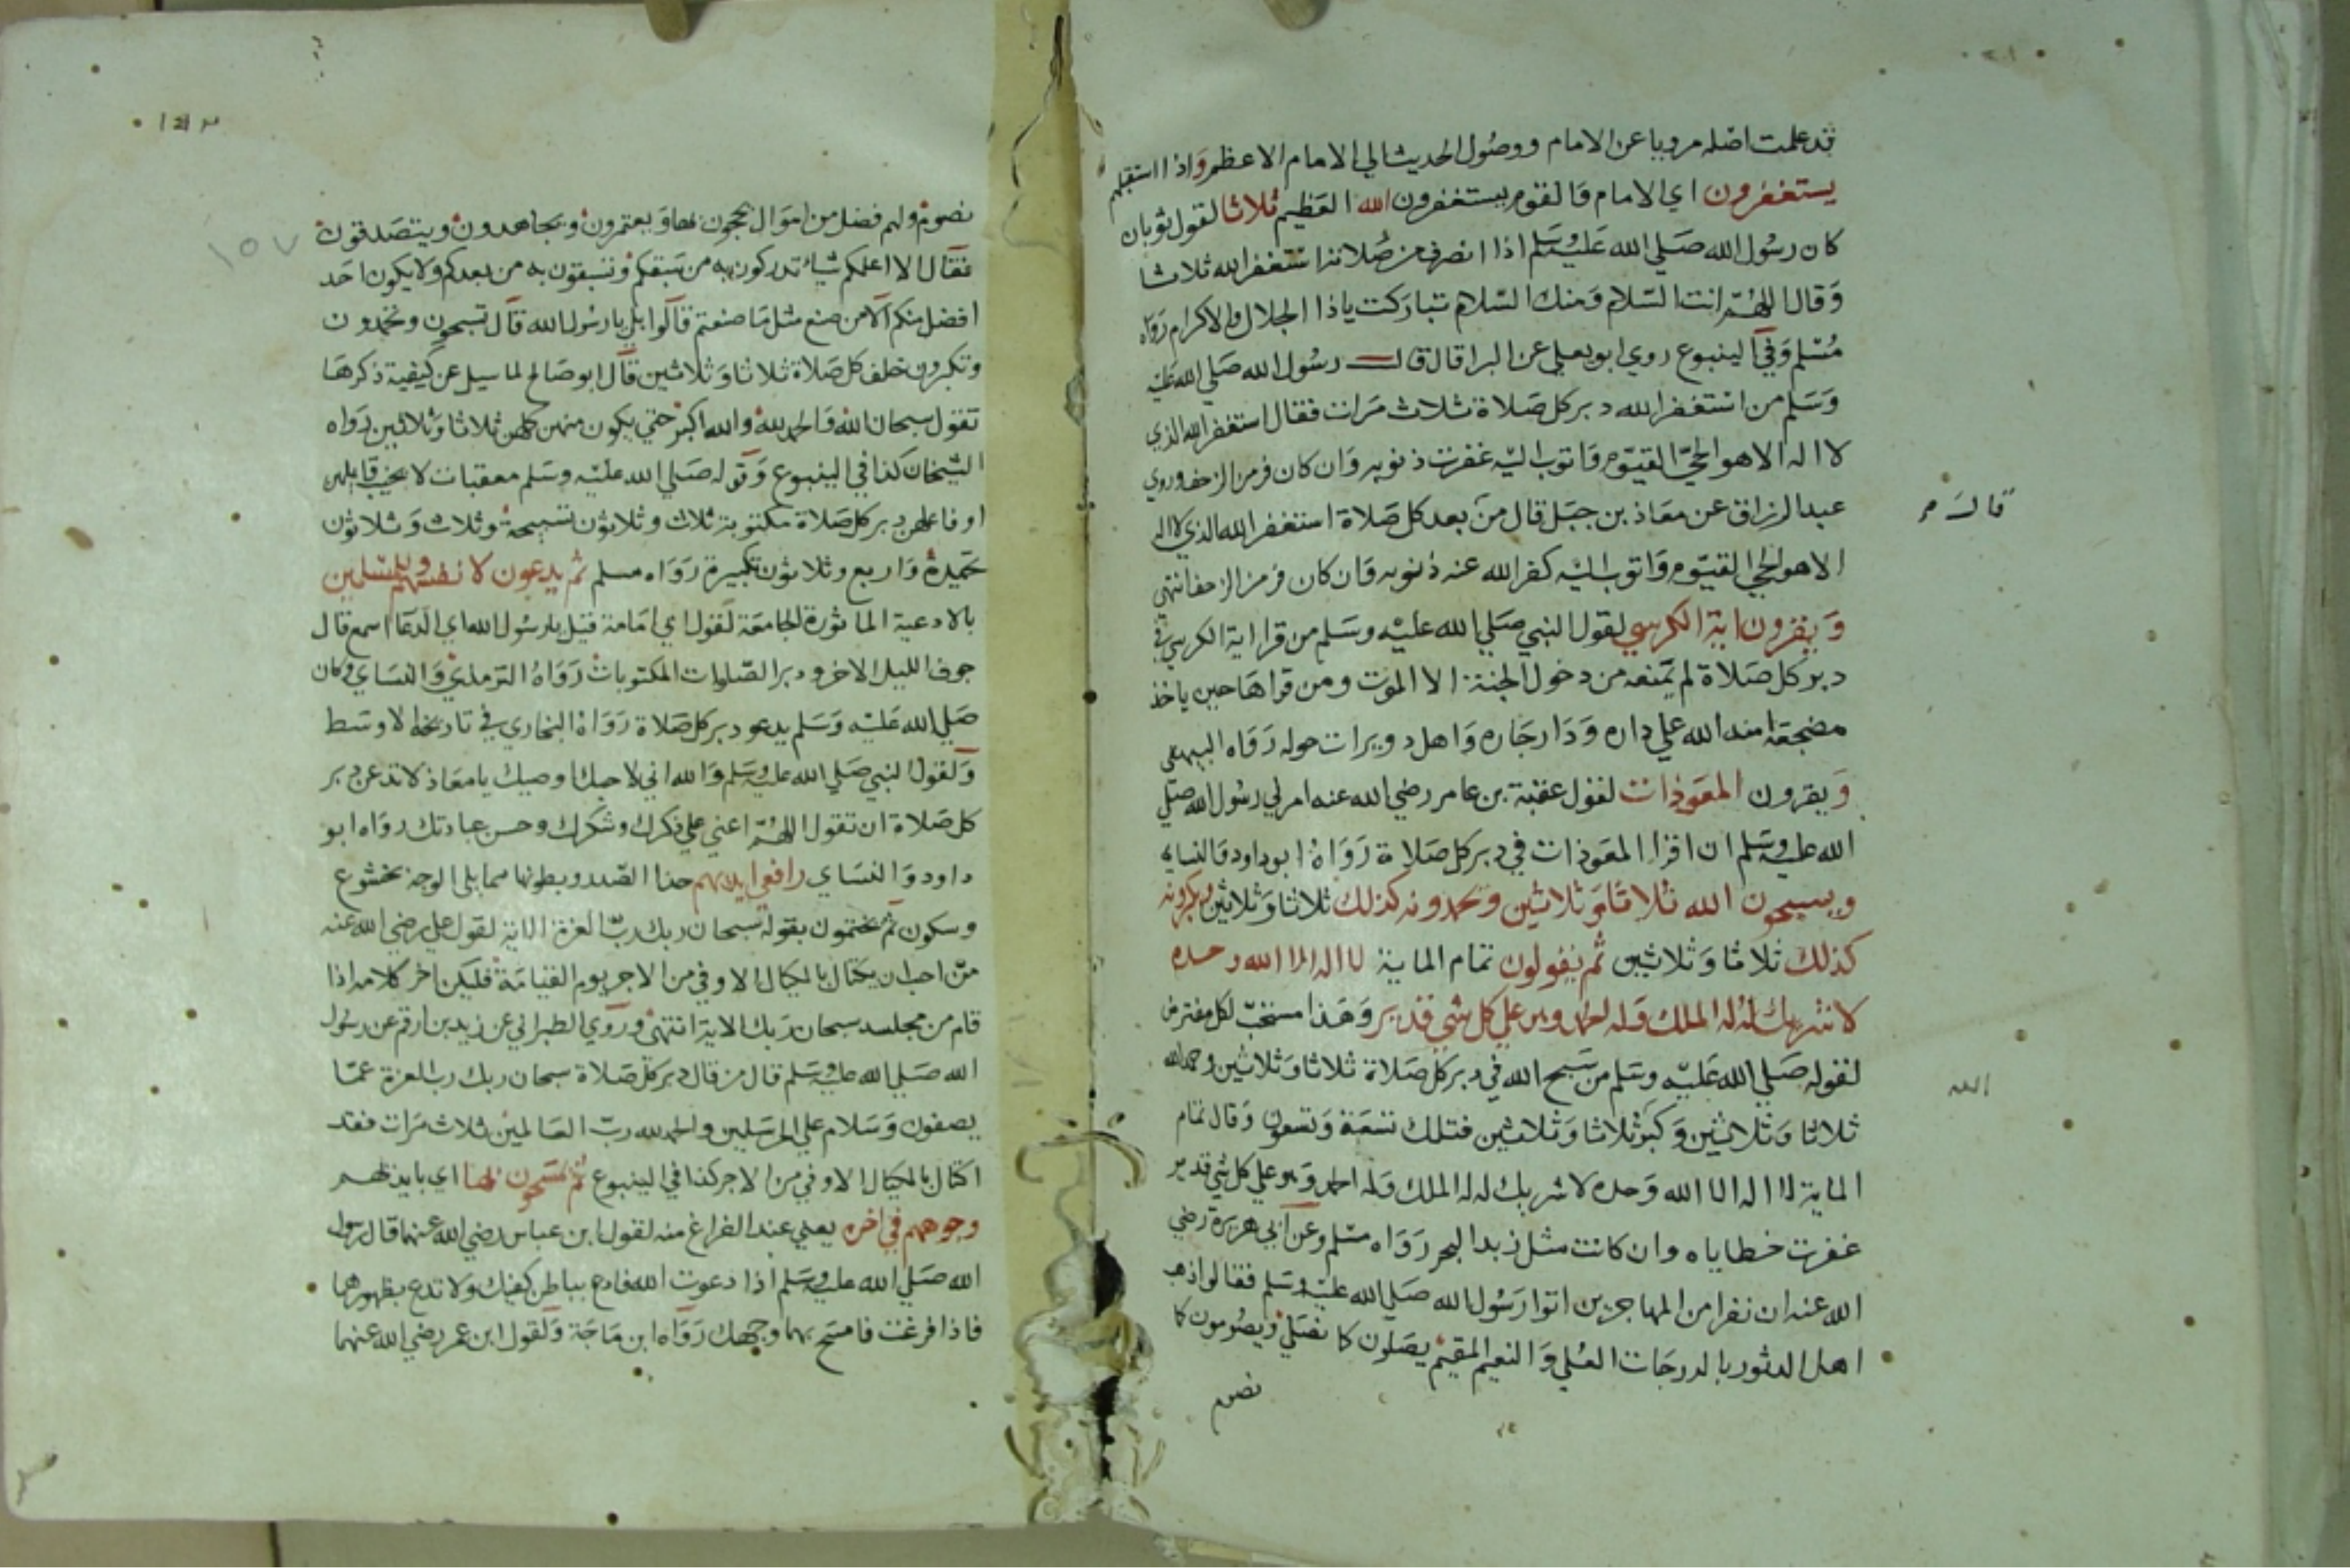 قد علمت اصله مرويا عن الامام ووصول الحديث الي الامام الاعظم واذا استقبلهم
يستغفرون اي الامام والقوم يستغفرون الله العظيم ثلاثا لقول ثوبان
كان رسول الله صلي الله عليه وسلم اذا انصرف من صلاته استغفر الله ثلاثا
وقال اللهم انت السلام ومنك السلام تباركت ياذا الجلال والاكرام رواه
مسلم وفي الينبوع روي ابو يعلي عن البرا قال قال رسول الله صلي الله عليه
وسلم من استغفر الله دبر كل صلاة ثلاث مرات فقال استغفر الله الذي
لا اله الا هو الحي القيوم واتوب اليه غفرت ذنوبه وان كان فر من الزحف وروي
عبد الرزاق عن معاذ بن جبل قال من بعد كل صلاة استغفر الله الذي لا اله
قال م
الا هو الحي القيوم واتوب اليه كفر الله عنه ذنوبه وان كان فر من الزحف انتهي
ويقرون اية الكرسي لقول النبي صلي الله عليه وسلم من قرا اية الكرسي في
دبر كل صلاة لم يمنعه من دخول الجنة الا الموت ومن قراها حين ياخذ
مضجعه امنه الله علي داره ودار جاره واهل دويرات حوله رواه البيهقي
ويقرون المعوذات لقول عقبة بن عامر رضي الله عنه امرني رسول الله صلي
الله عليه وسلم ان اقرا المعوذات في دبر كل صلاة رواه ابو داود والنساي
ويسبحون الله ثلاثا وثلاثين ويحمدونه كذلك ثلاثا وثلاثين ويكبرونه
كذلك ثلاثا وثلاثين ثم يقولون تمام الماية لا اله الا الله وحده
لا شريك له له الملك وله الحمد وهو علي كل شي قدير وهذا مستحب لكل مفترض
لقوله صلي الله عليه وسلم من سبح الله في دبر كل صلاة ثلاثا وثلاثين وحمد الله
الله
ثلاثا وثلاثين وكبر ثلاثا وثلاثين فتلك تسعة وتسعون وقال تمام
الماية لا اله الا الله وحده لا شريك له له الملك وله الحمد وهو علي كل شي قدير
غفرت خطاياه وان كانت مثل زبد البحر رواه مسلم وعن ابي هريرة رضي
الله عنه ان نفرا من المهاجرين اتوا رسول الله صلي الله عليه وسلم فقالوا ذهب
اهل الدثور بالدرجات العلي والنعيم المقيم يصلون كما نصلي ويصومون كما
نصوم
١٥٧
نصوم ولهم فضل من اموال يحجون بها ويعتمرون ويجاهدون ويتصدقون
فقال الا اعلمكم شيا تدركون به من سبقكم وتسبقون به من بعدكم ولا يكون احد
افضل منكم الا من صنع مثل ما صنعتم قالوا بلي يا رسول الله قال تسبحون وتحمدون
وتكبرون خلف كل صلاة ثلاثا وثلاثين قال ابو صالح لما سيل عن كيفية ذكرها
تقول سبحان الله والحمد لله والله اكبر حتي يكون منهن كلهن ثلاثا وثلاثين رواه
الشيخان كذا في الينبوع وقوله صلي الله عليه وسلم معقبات لا يخيب قايلهن
او فاعلهن دبر كل صلاة مكتوبة ثلاث وثلاثون تسبيحة وثلاث وثلاثون
تحميدة واربع وثلاثون تكبيرة رواه مسلم ثم يدعون لانفسهم وللمسلمين
بالادعية الماثورة الجامعة لقول ابي امامة قيل يا رسول الله اي الدعا اسمع قال
جوف الليل الاخر ودبر الصلوات المكتوبات رواه الترمذي والنساي وكان
صلي الله عليه وسلم يدعو دبر كل صلاة رواه البخاري في تاريخه الاوسط
ولقول النبي صلي الله عليه وسلم والله اني لاحبك اوصيك يا معاذ لا تدعن دبر
كل صلاة ان تقول اللهم اعني علي ذكرك وشكرك وحسن عبادتك رواه ابو
داود والنساي رافعي ايديهم حذا الصدر وبطونها مما يلي الوجه بخشوع
وسكون ثم يختمون بقوله سبحان ربك رب العزة الاية لقول علي رضي الله عنه
من احب ان يكتال بالمكيال الاوفي من الاجر يوم القيامة فليكن اخر كلامه اذا
قام من مجلسه سبحان ربك الاية انتهي وروي الطبراني عن زيد بن ارقم عن رسول
الله صلي الله عليه وسلم قال من قال دبر كل صلاة سبحان ربك رب العزة عما
يصفون وسلام علي المرسلين والحمد لله رب العالمين ثلاث مرات فقد
اكتال بالمكيال الاوفي من الاجر كذا في الينبوع ثم يمسحون بها اي بايديهم
وجوههم في اخره يعني عند الفراغ منه لقول ابن عباس رضي الله عنهما قال رسول
الله صلي الله عليه وسلم اذا دعوت الله فادع بباطن كفيك ولا تدع بظهورهما
فاذا فرغت فامسح بهما وجهك رواه ابن ماجة ولقول ابن عمر رضي الله عنهما